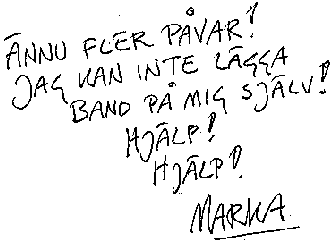 ÄNNU FLER PÅVAR!
JAG KAN INTE LÄGGA
BAND PÅ MIG SJÄLV!
HJÄLP!
HJÄLP!
MARKA